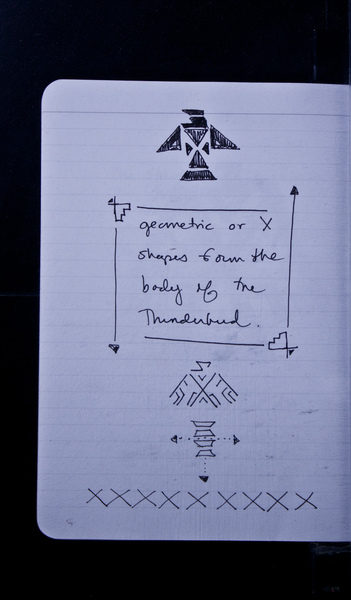 geometric or X
shapes form the
body of the
Thunderbird.